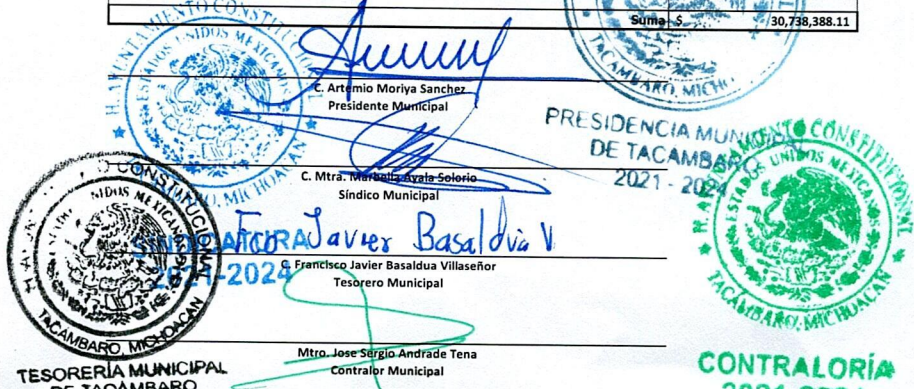 Suma $ 30,738,388.11
TACAMBARO, MICHO
H. AYUNTAMIENTO CONSTITUCIONAL
ESTADOS UNIDOS MEXICANOS
TACAMBARO, MICHOACAN
C. Artemio Moriya Sanchez
Presidente Municipal
PRESIDENCIA MUNICIPAL
DE TACAMBARO
2021 - 2024
C. Mtra. Marbella Ayala Solorio
Síndico Municipal
SINDICATURA
2021-2024
Fco Javier Basaldua V.
C. Francisco Javier Basaldua Villaseñor
Tesorero Municipal
CONSTITUCIONAL
UNIDOS MEXICANOS
TACAMBARO, MICHOACAN
TESORERÍA MUNICIPAL
DE TACAMBARO
Mtro. Jose Sergio Andrade Tena
Contralor Municipal
H. AYUNTAMIENTO CONSTITUCIONAL
ESTADOS UNIDOS MEXICANOS
TACAMBARO, MICHOACAN
CONTRALORÍA